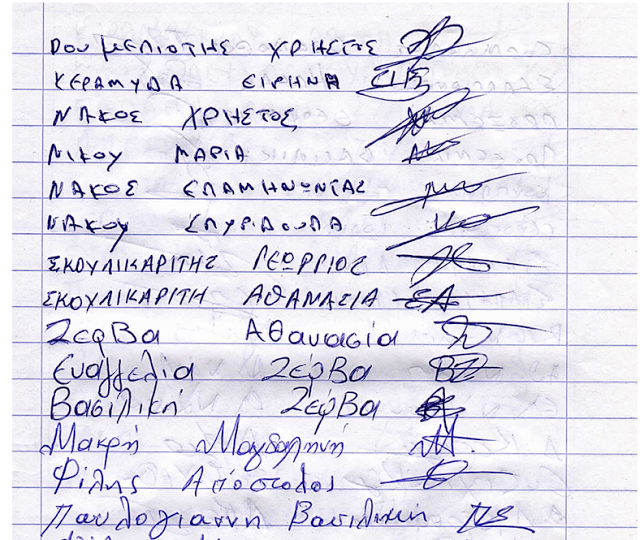 Ρουμελιωτης ΧΡΗΣΤΟΣ
ΚΕΡΑΜΥΔΑ ΕΙΡΗΝΗ
ΝΑΚΟΣ ΧΡΗΣΤΟΣ
ΝΙΚΟΥ ΜΑΡΙΑ
ΝΑΚΟΣ ΕΠΑΜΗΝΩΝΤΑΣ
ΝΑΚΟΥ ΣΠΥΡΙΔΟΥΛΑ
ΣΚΟΥΛΙΚΑΡΙΤΗΣ ΓΕΩΡΓΙΟΣ
ΣΚΟΥΛΙΚΑΡΙΤΗ ΑΘΑΝΑΣΙΑ ΣΑ
Ζερβα Αθανασία
Ευαγγελία Ζέρβα ΒΖ
Βασιλική Ζέρβα
Μακρή Μαγδαληνή Μ.
Φίλης Απόστολος
Παπλογιαννη Βασιλική